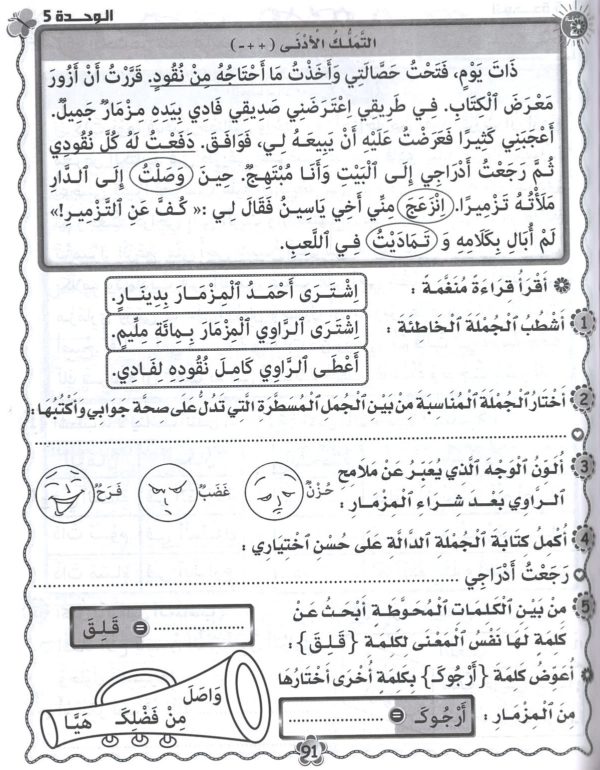 الوحدة 5
التَّمَلُّكُ الْأَدْنَى (++-)
ذَاتَ يَوْمٍ، فَتَحْتُ حَصَّالَتِي وَأَخَذْتُ مَا أَحْتَاجُهُ مِنْ نُقُودٍ. قَرَّرْتُ أَنْ أَزُورَ
مَعْرَضَ الْكِتَابِ. فِي طَرِيقِي اِعْتَرَضَنِي صَدِيقِي فَادِي بِيَدِهِ مِزْمَارٌ جَمِيلٌ.
أَعْجَبَنِي كَثِيرًا فَعَرَضْتُ عَلَيْهِ أَنْ يَبِيعَهُ لِي، فَوَافَقَ. دَفَعْتُ لَهُ كُلَّ نُقُودِي
ثُمَّ رَجَعْتُ أَدْرَاجِي إِلَى الْبَيْتِ وَأَنَا مُبْتَهِجٌ. حِينَ وَصَلْتُ إِلَى الدَّارِ
مَلَأْتُهُ تَزْمِيرًا. اِنْزَعَجَ مِنِّي أَخِي يَاسِينُ فَقَالَ لِي :« كُفَّ عَنِ التَّزْمِيرِ!»
لَمْ أُبَالِ بِكَلَامِهِ وَ تَمَادَيْتُ فِي اللَّعِبِ.
أَقْرَأُ قِرَاءَةً مُنَغَّمَةً :
1 أَشْطُبُ الْجُمْلَةَ الْخَاطِئَةَ :
اِشْتَرَى أَحْمَدُ الْمِزْمَارَ بِدِينَارٍ.
اِشْتَرَى الرَّاوِي الْمِزْمَارَ بِمِائَةِ مِلِّيمٍ.
أَعْطَى الرَّاوِي كَامِلَ نُقُودِهِ لِفَادِي.
2 أَخْتَارُ الْجُمْلَةَ الْمُنَاسِبَةَ مِنْ بَيْنِ الْجُمَلِ الْمُسَطَّرَةِ الَّتِي تَدُلُّ عَلَى صِحَّةِ جَوَابِي وَأَكْتُبُهَا :
3 أُلَوِّنُ الْوَجْهَ الَّذِي يُعَبِّرُ عَنْ مَلَامِحِ
الرَّاوِي بَعْدَ شِرَاءِ الْمِزْمَارِ :
حُزْنٌ غَضَبٌ فَرَحٌ
4 أُكْمِلُ كِتَابَةَ الْجُمْلَةِ الدَّالَّةِ عَلَى حُسْنِ اخْتِيَارِي :
رَجَعْتُ أَدْرَاجِي
5 مِنْ بَيْنِ الْكَلِمَاتِ الْمُحَوَّطَةِ أَبْحَثُ عَنْ
كَلِمَةٍ لَهَا نَفْسُ الْمَعْنَى لِكَلِمَةِ {قَلِقَ} :
= قَلِقَ
أُعَوِّضُ كَلِمَةَ {أَرْجُوكَ} بِكَلِمَةٍ أُخْرَى أَخْتَارُهَا
مِنَ الْمِزْمَارِ :
أَرْجُوكَ =
وَاصَلَ
مِنْ فَضْلِكَ هَيَّا
91